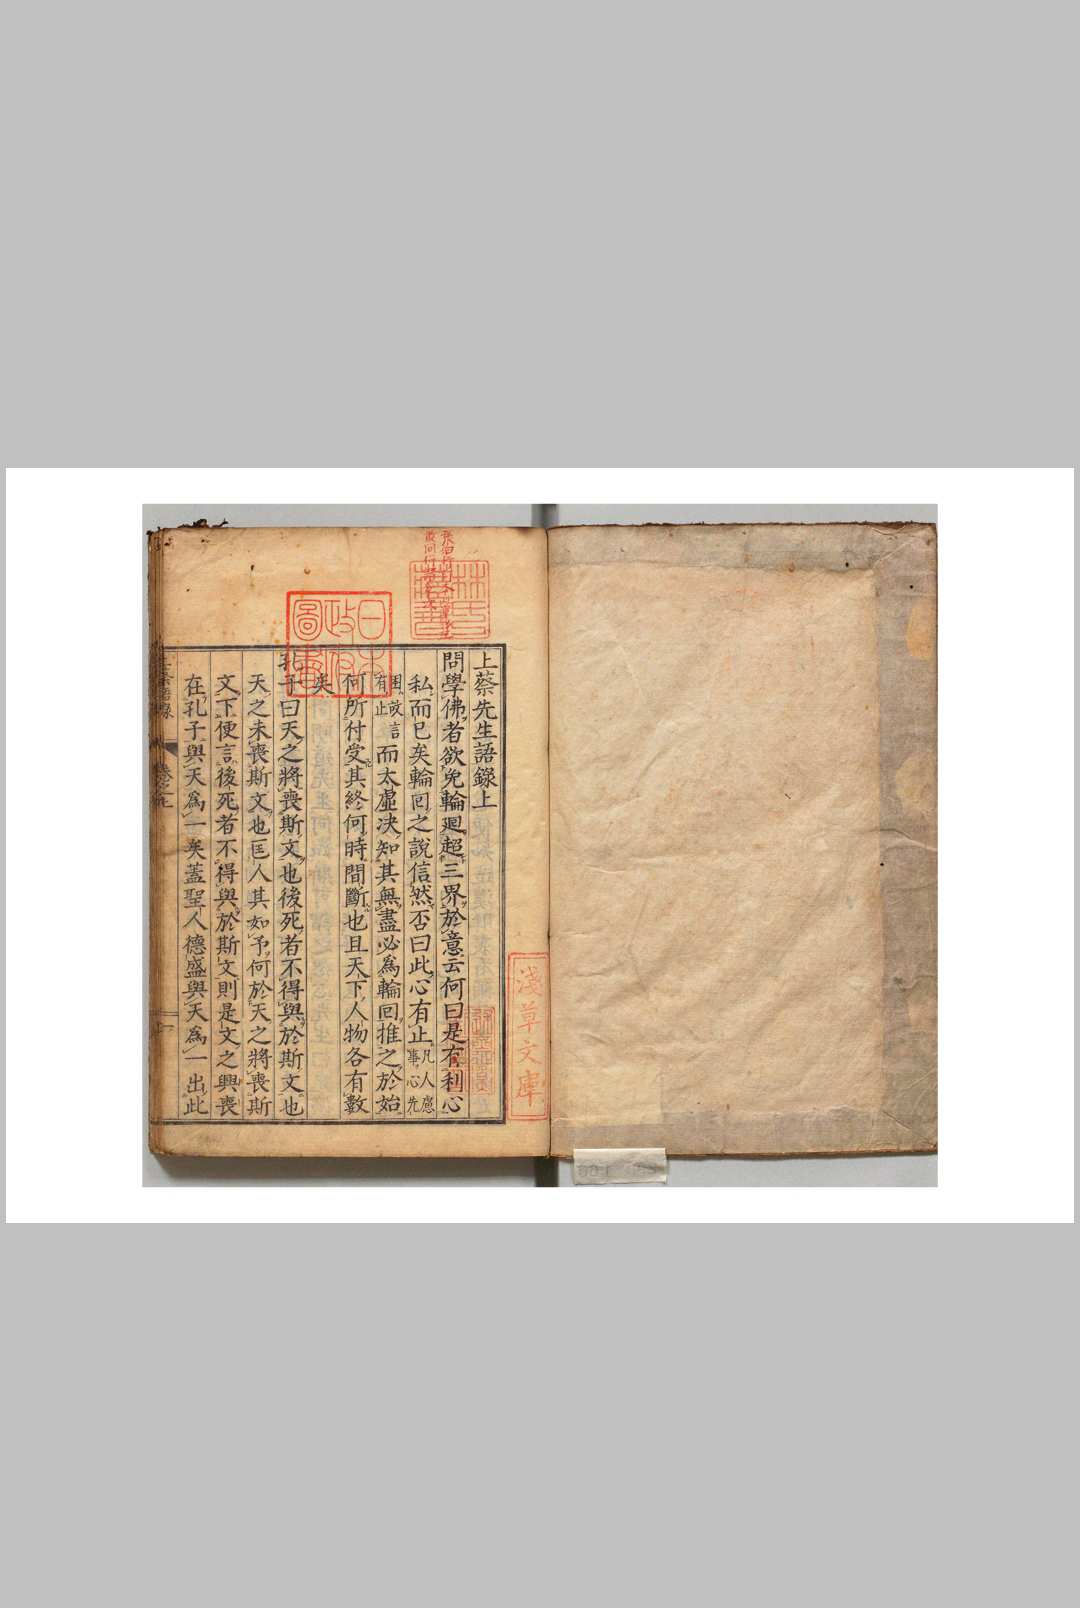 上蔡先生語錄上
問學佛者欲免輪廻超三界於意云何曰是有利心
私而已矣輪回之說信然否曰此心有止凡人慮事心先
困故言有止而太虛決知其無盡必為輪回推之於始
何所付受其終何時間斷也且天下人物各有數
矣
孔子曰天之將喪斯文也後死者不得與於斯文也
天之未喪斯文也匡人其如予何於天之將喪斯
文下便言後死者不得與於斯文則是文之興喪
在孔子與天為一矣蓋聖人德盛與天為一出此
林氏藏書
日本政府圖書
淺草文庫